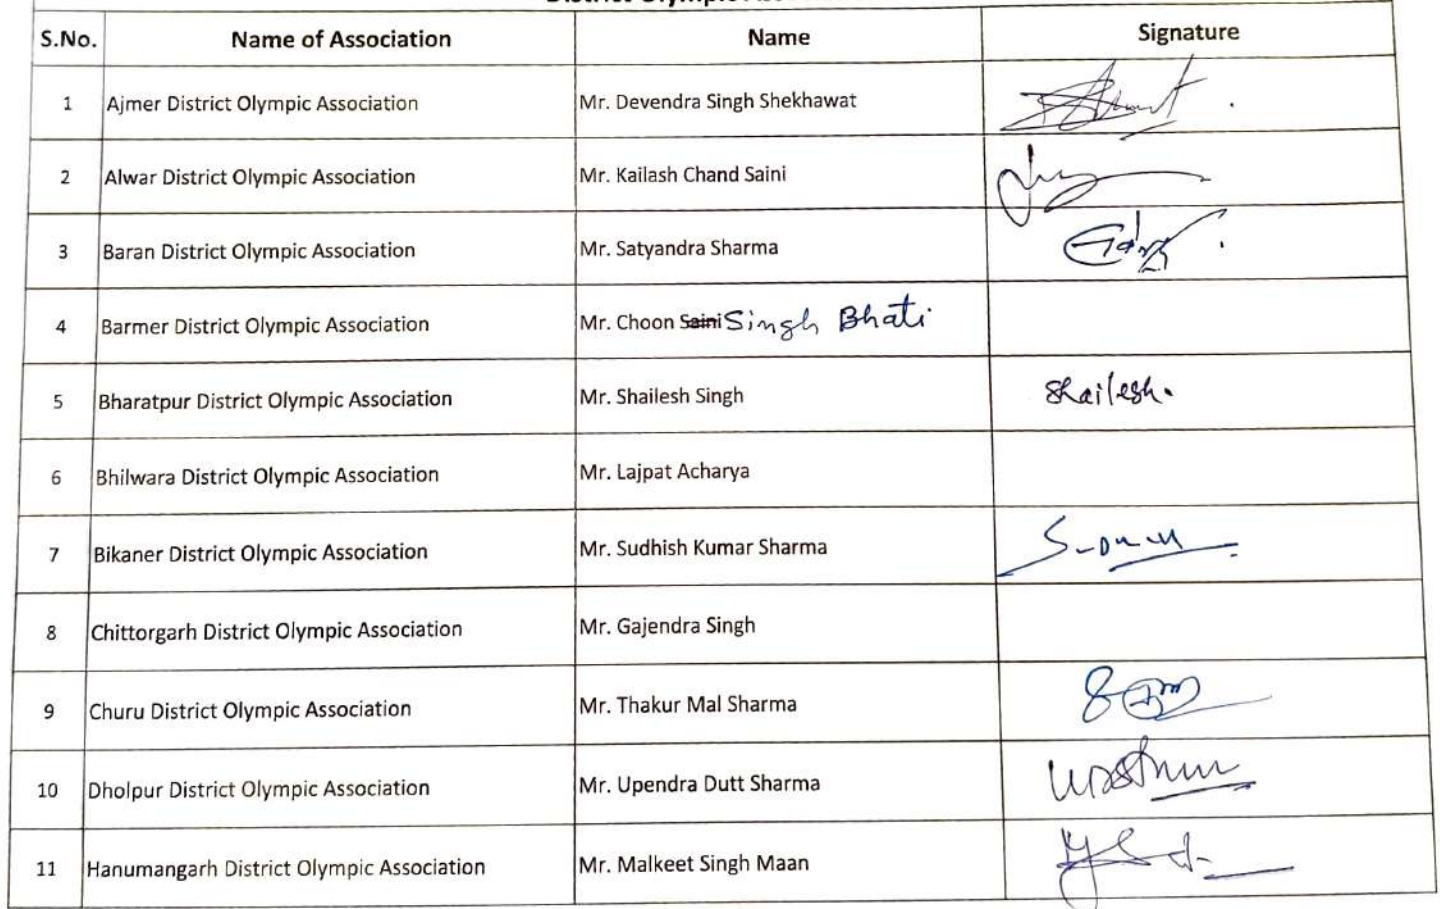 District Olympic
S.No. Name of Association Name Signature
1 Ajmer District Olympic Association Mr. Devendra Singh Shekhawat
2 Alwar District Olympic Association Mr. Kailash Chand Saini
3 Baran District Olympic Association Mr. Satyandra Sharma
4 Barmer District Olympic Association Mr. Choon Saini Singh Bhati
5 Bharatpur District Olympic Association Mr. Shailesh Singh Shailesh.
6 Bhilwara District Olympic Association Mr. Lajpat Acharya
7 Bikaner District Olympic Association Mr. Sudhish Kumar Sharma
8 Chittorgarh District Olympic Association Mr. Gajendra Singh
9 Churu District Olympic Association Mr. Thakur Mal Sharma
10 Dholpur District Olympic Association Mr. Upendra Dutt Sharma
11 Hanumangarh District Olympic Association Mr. Malkeet Singh Maan